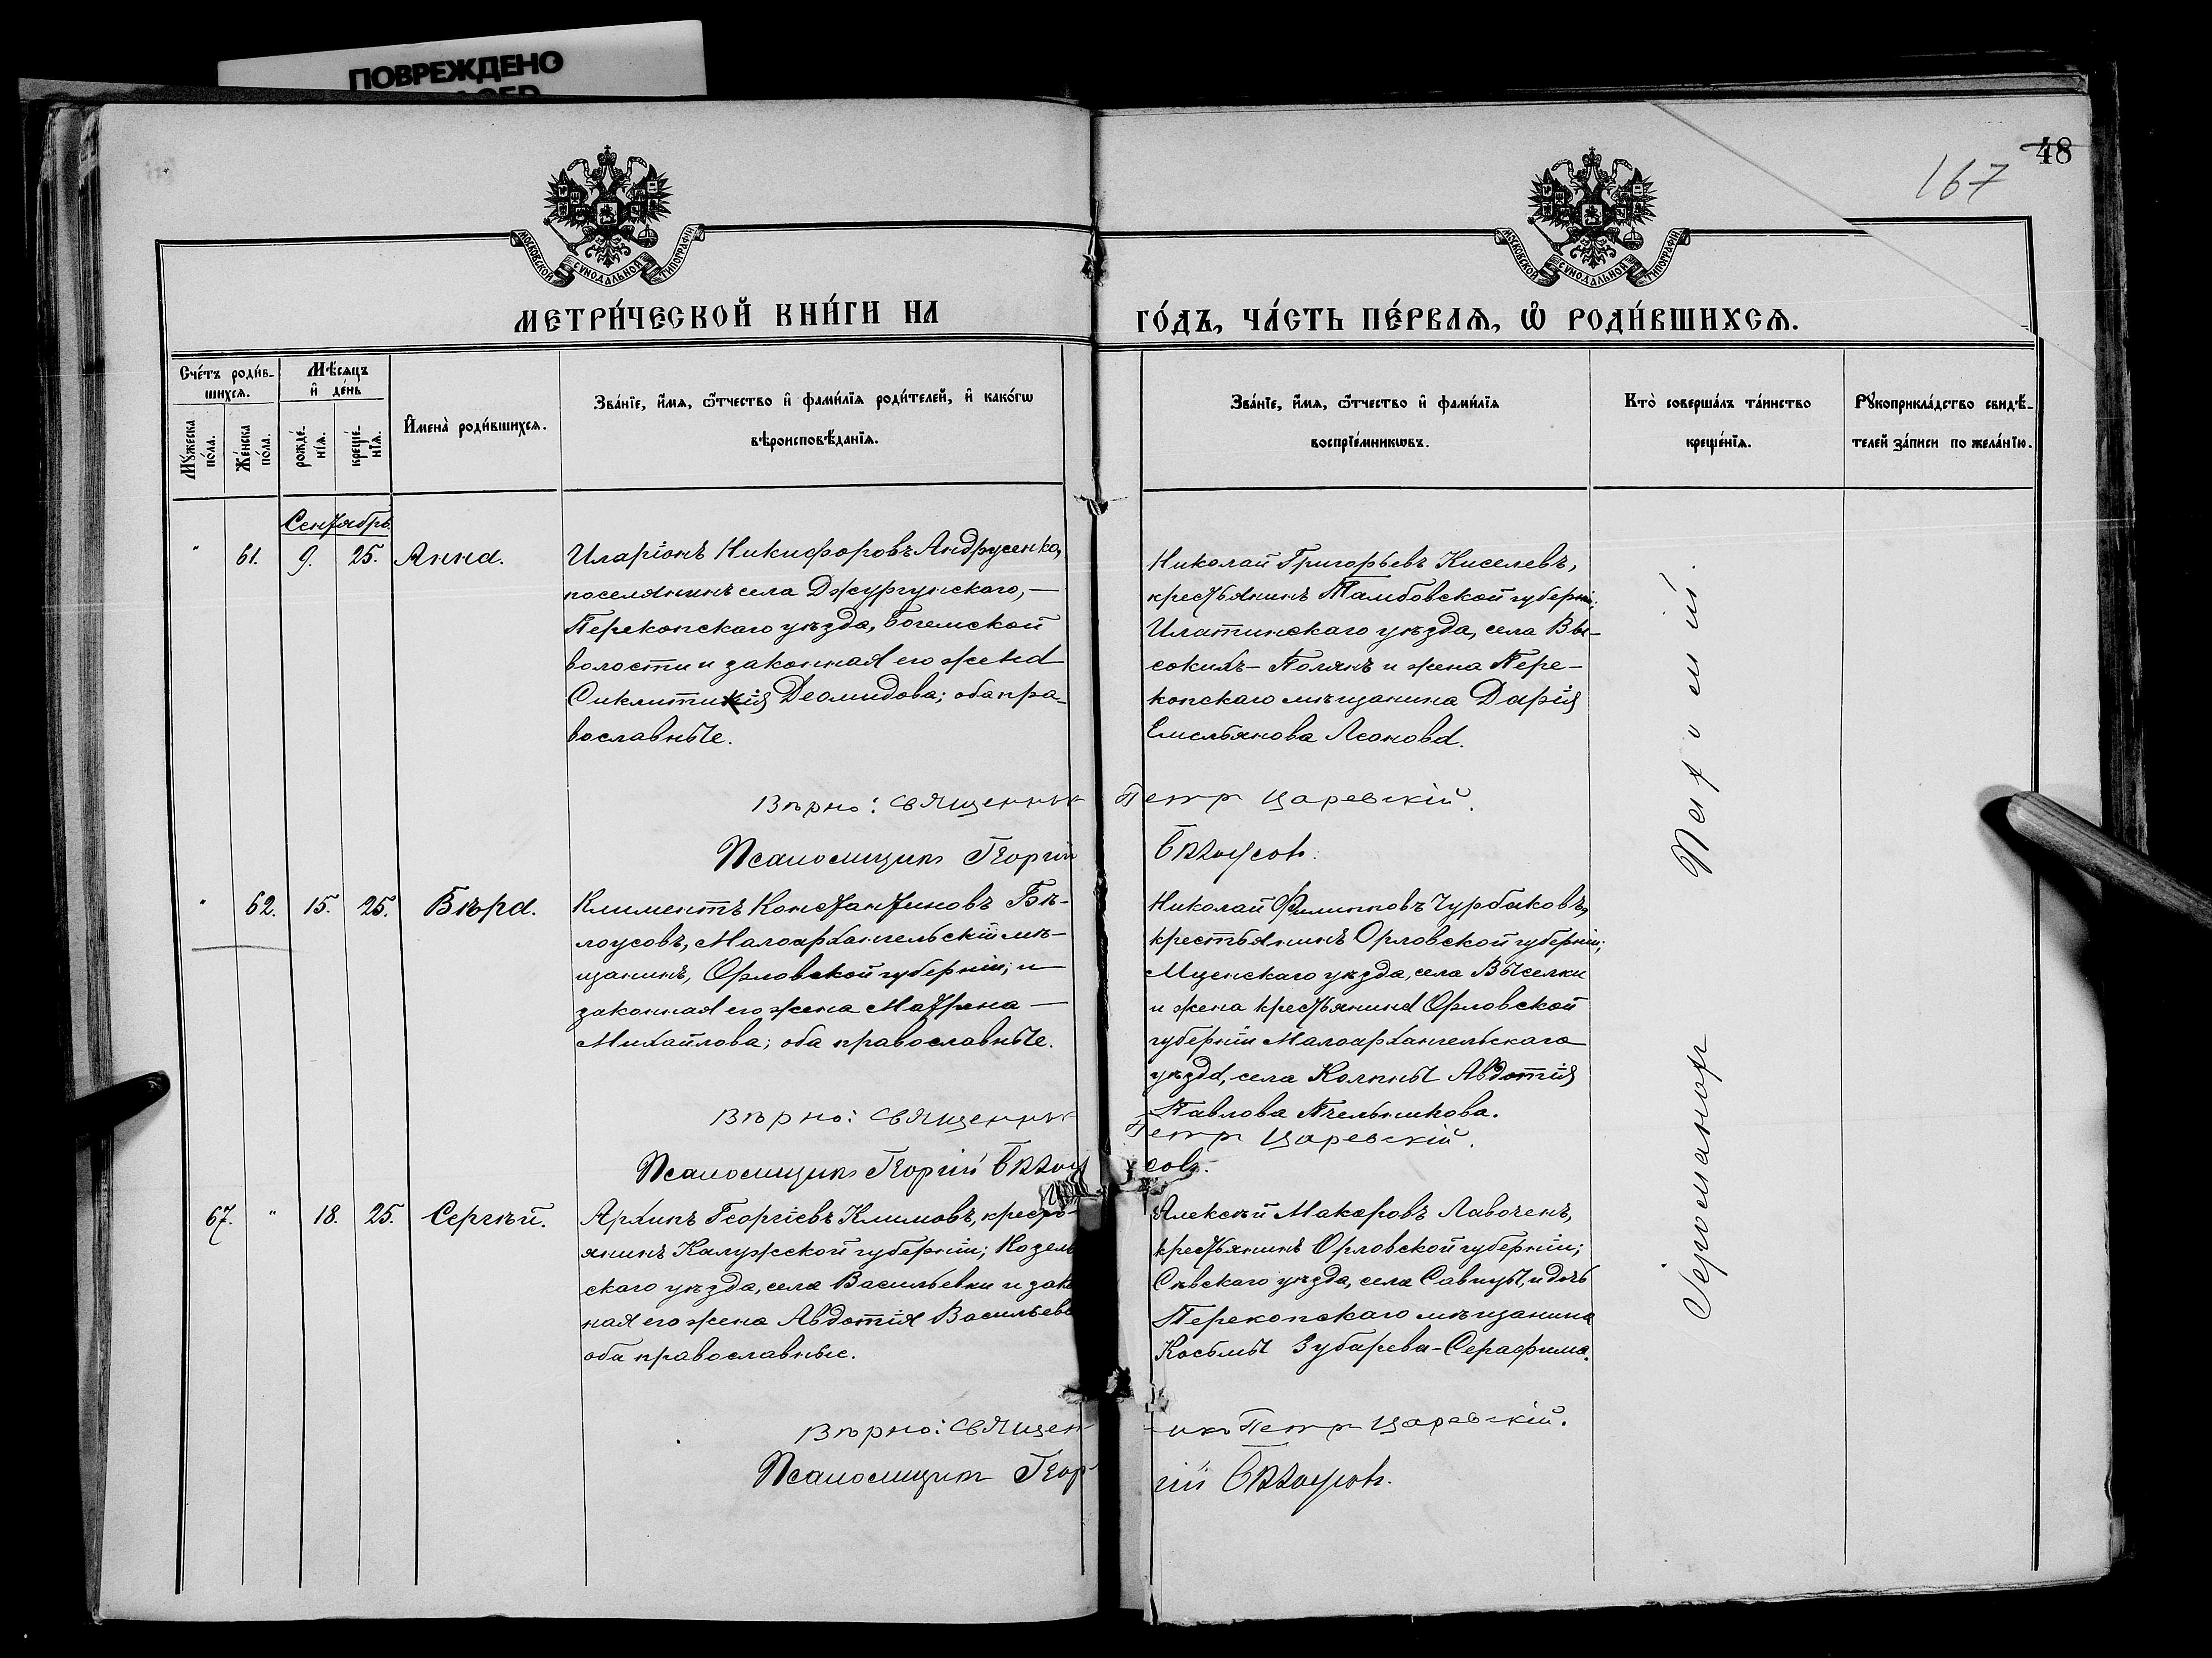 ПОВРЕЖДЕНО
167
48
МОСКОВСКОЙ СУНОДАЛЬНОЙ ТИПОГРАФІИ
МОСКОВСКОЙ СУНОДАЛЬНОЙ ТИПОГРАФІИ
МЕТРИ́ЧЕСКОЙ КНИ́ГИ НА
ГО́ДЪ, ЧА́СТЬ ПЕ́РВАѦ, Ѡ҆ РОДИ́ВШИХСѦ.
Сче́тъ роди́в-
шихсѧ.
Мꙋ́жеска по́ла.
Же́нска по́ла.
Мѣ́сѧцъ
и҆ де́нь
рожде́-
нїѧ.
креще́-
нїѧ.
И҆мена̀ роди́вшихсѧ.
Зва́нїе, и҆́мѧ, ѻ҆́тчество и҆ фами́лїѧ роди́телей, и҆ како́гѡ
вѣроисповѣ́данїѧ.
Зва́нїе, и҆́мѧ, ѻ҆́тчество и҆ фами́лїѧ
воспрїе́мникѡвъ.
Кто̀ соверша́лъ та́инство
креще́нїѧ.
Рꙋкоприкла́дство свидѣ́-
телей за́писи по жела́нїю.
Сентябрь.
" 61. 9. 25. Анна.
Иларіонъ Никифоровъ Андрусенко,
поселянинъ села Джургунскаго, —
Перекопскаго уѣзда, Богемской
волости и законная его жена
Сиклитикія Деомидова; оба пра-
вославные.
Николай Григорьевъ Киселевъ,
крестьянинъ Тамбовской губерніи;
Илатинскаго уѣзда, села Вы-
сокихъ-Полянъ и жена Пере-
копскаго мѣщанина Дарія
Емельянова Леонова.
Вѣрно: Священникъ Петръ Царевскій.
Псаломщикъ Георгій Бѣлоусовъ.
" 62. 15. 25. Вѣра.
Климентъ Константиновъ Бѣ-
лоусовъ, Малоархангельскій мѣ-
щанинъ, Орловской губерніи; и
законная его жена Матрена —
Михайлова; оба православные.
Николай Филипповъ Чурбаковъ,
крестьянинъ Орловской губерніи;
Мценскаго уѣзда, села Выселки
и жена крестьянина Орловской
губерніи Малоархангельскаго
уѣзда, села Колпны Авдотія
Павлова Пчельникова.
Вѣрно: Священникъ Петръ Царевскій.
Псаломщикъ Георгій Бѣлоусовъ.
67. " 18. 25. Сергѣй.
Архипъ Георгіевъ Климовъ, кресть-
янинъ Калужской губерніи; Козель
скаго уѣзда, села Васильевки и зако
ная его жена Авдотія Васильева
оба православные.
Алексѣй Макаровъ Лавоченъ,
крестьянинъ Орловской губерніи;
Сѣвскаго уѣзда, села Савицы, и дочь
Перекопскаго мѣщанина
Косьмы Зубарева-Серафима.
Вѣрно: Священникъ Петръ Царевскій.
Псаломщикъ Георгій Бѣлоусовъ.
Іеромонахъ